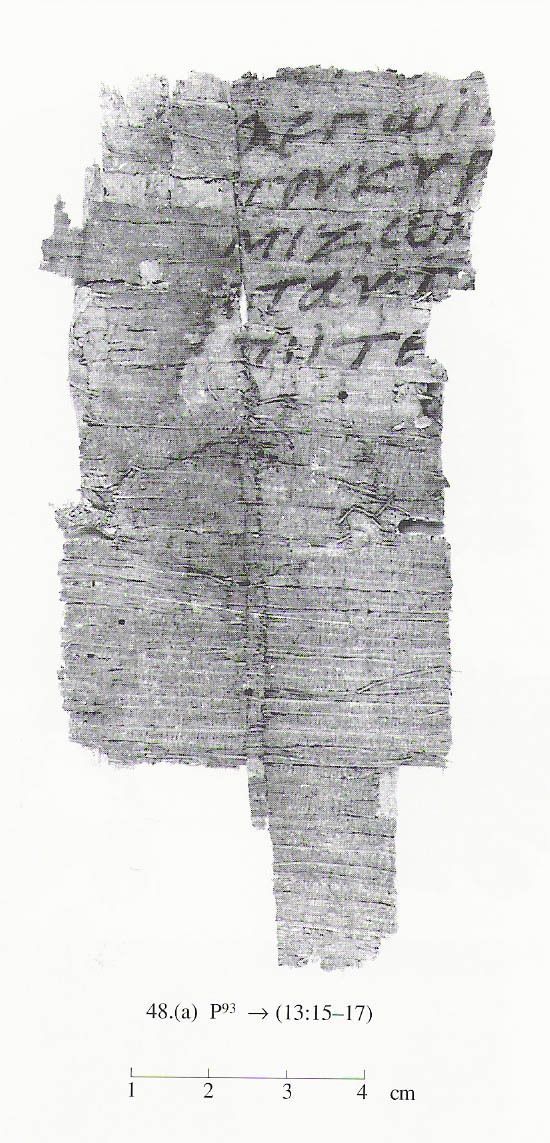 ΛΕΓΩΥ
ΤΟΥΚΥΡ
ΜΙΖΩΝ
ΤΑΥΤ
ΙΗΤΕ
48.(a) P⁹³ → (13:15–17)
1 2 3 4 cm